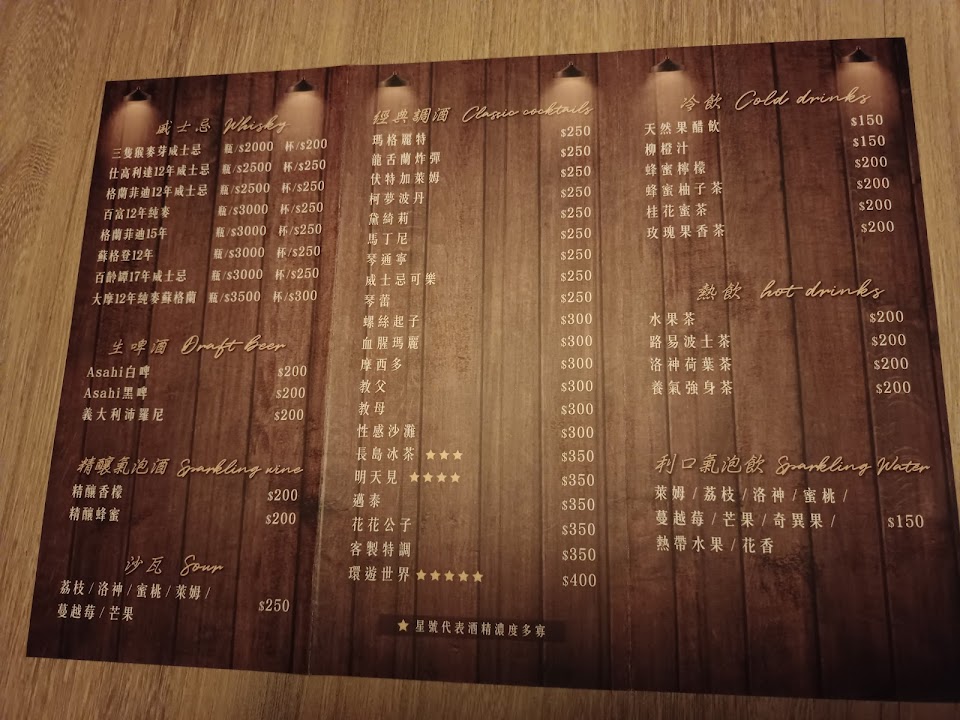 威士忌 Whisky
三隻猴麥芽威士忌 瓶/$2000 杯/$200
仕高利達12年威士忌 瓶/$2500 杯/$250
格蘭菲迪12年威士忌 瓶/$2500 杯/$250
百富12年純麥 瓶/$3000 杯/$250
格蘭菲迪15年 瓶/$3000 杯/$250
蘇格登12年 瓶/$3000 杯/$250
百齡罈17年威士忌 瓶/$3000 杯/$250
大摩12年純麥蘇格蘭 瓶/$3500 杯/$300
生啤酒 Draft Beer
Asahi白啤 $200
Asahi黑啤 $200
義大利沛羅尼 $200
精釀氣泡酒 Sparkling wine
精釀香檬 $200
精釀蜂蜜 $200
沙瓦 Sour
荔枝/洛神/蜜桃/萊姆/
蔓越莓/芒果 $250
經典調酒 Classic cocktails
瑪格麗特 $250
龍舌蘭炸彈 $250
伏特加萊姆 $250
柯夢波丹 $250
黛綺莉 $250
馬丁尼 $250
琴通寧 $250
威士忌可樂 $250
琴蕾 $250
螺絲起子 $300
血腥瑪麗 $300
摩西多 $300
教父 $300
教母 $300
性感沙灘 $300
長島冰茶 ★★★ $350
明天見 ★★★★ $350
邁泰 $350
花花公子 $350
客製特調 $350
環遊世界 ★★★★★ $400
★ 星號代表酒精濃度多寡
冷飲 Cold drinks
天然果醋飲 $150
柳橙汁 $150
蜂蜜檸檬 $200
蜂蜜柚子茶 $200
桂花蜜茶 $200
玫瑰果香茶 $200
熱飲 hot drinks
水果茶 $200
路易波士茶 $200
洛神荷葉茶 $200
養氣強身茶 $200
利口氣泡飲 Sparkling Water
萊姆/荔枝/洛神/蜜桃/
蔓越莓/芒果/奇異果/ $150
熱帶水果/花香